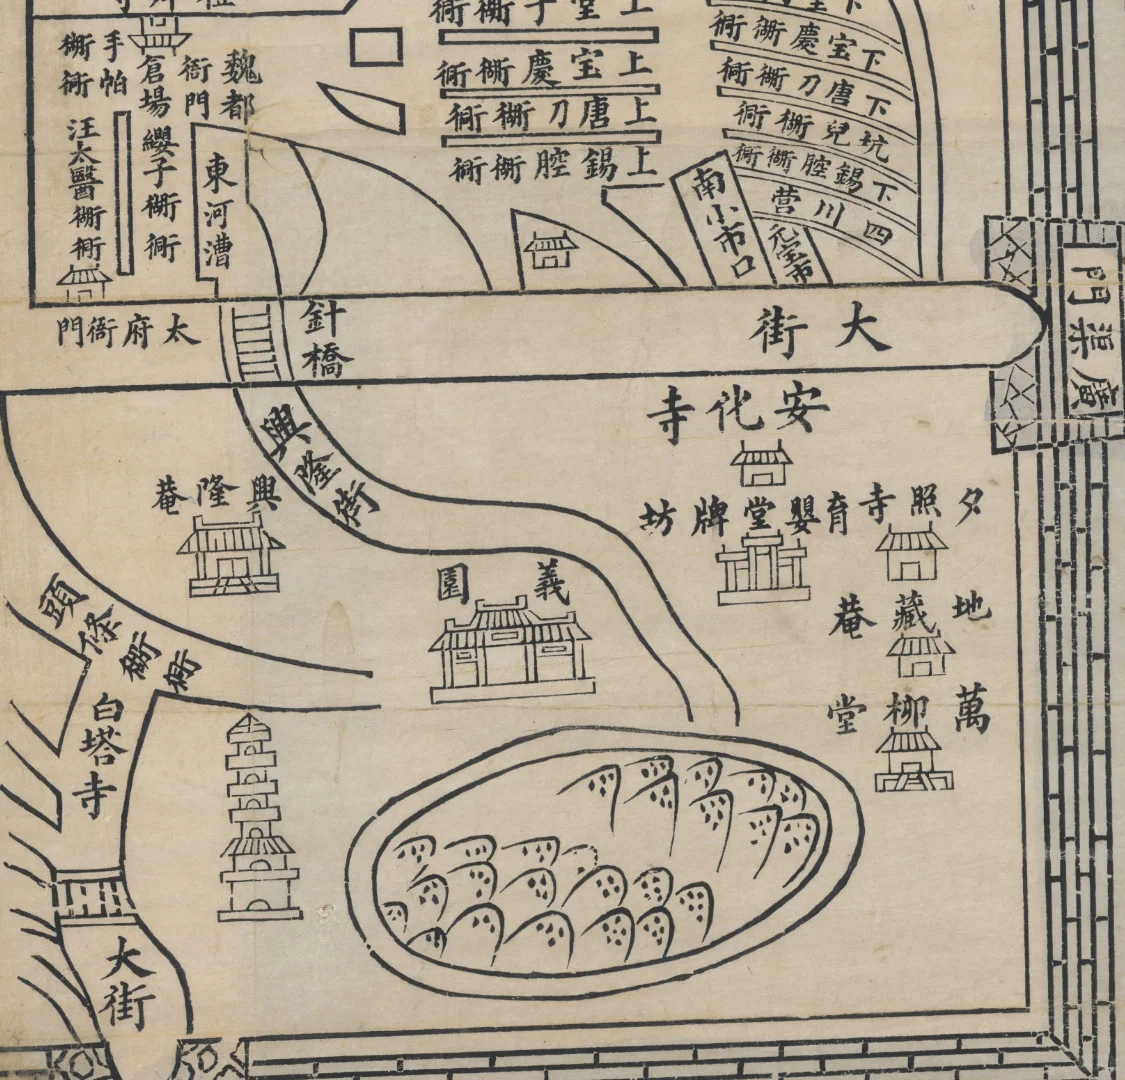 上堂子衚衕
上宝慶衚衕
上唐刀衚衕
上錫腔衚衕
下宝慶衚衕
下唐刀衚衕
坑兒衚衕
下錫腔衚衕
四川营
元宝市
南小市口
魏都
衙門
倉場
纓子衚衕
手帕
衚衕
汪太醫衚衕
東河漕
太府衙門
針橋
大街
廣渠門
安化寺
興隆街
興隆菴
育嬰堂牌坊
夕照寺
義園
地藏菴
萬柳堂
頭條衚衕
白塔寺
大街